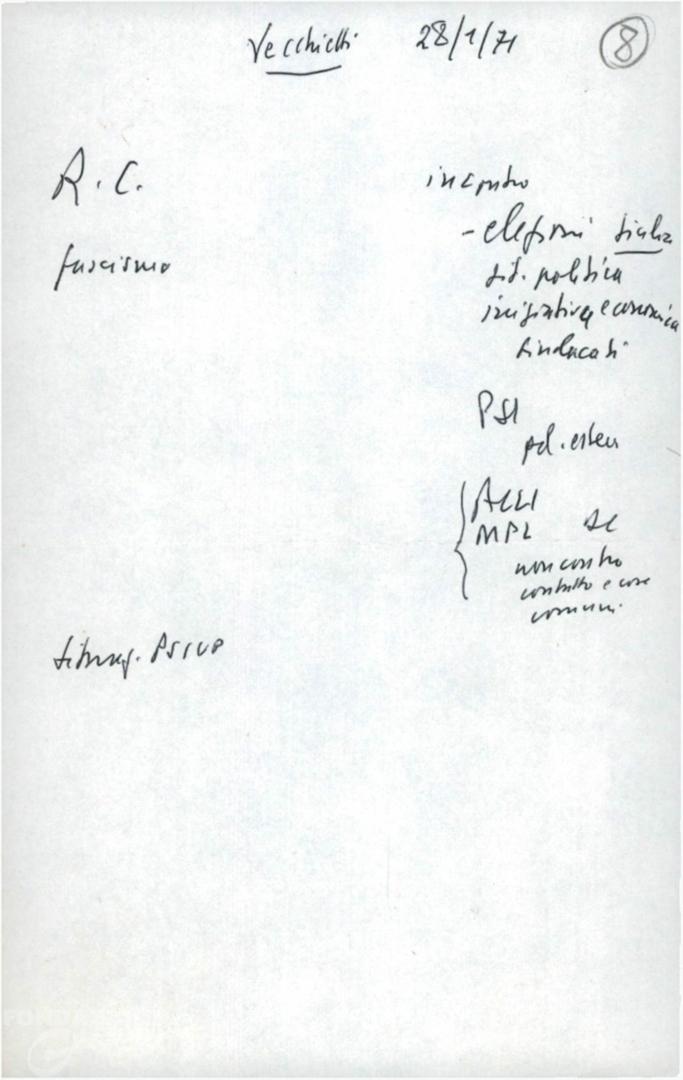 Vecchietti 28/1/71 8
R. C.
fascismo
incontro
- elezioni Sicilia
sit. politica
iniziativa economica
sindacati
PSI
pol. estera
ACLI
MPL
non contro
contatto e cose
comuni.
situaz. PSIUP
FONDAZIONE